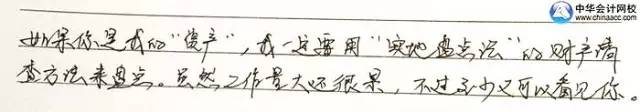 中华会计网校
www.chinaacc.com
如果你是我的“资产”，我一定要用“实地盘点法”的财产清
查方法来盘点。虽然工作量大还很累，不过至少又可以看见你。